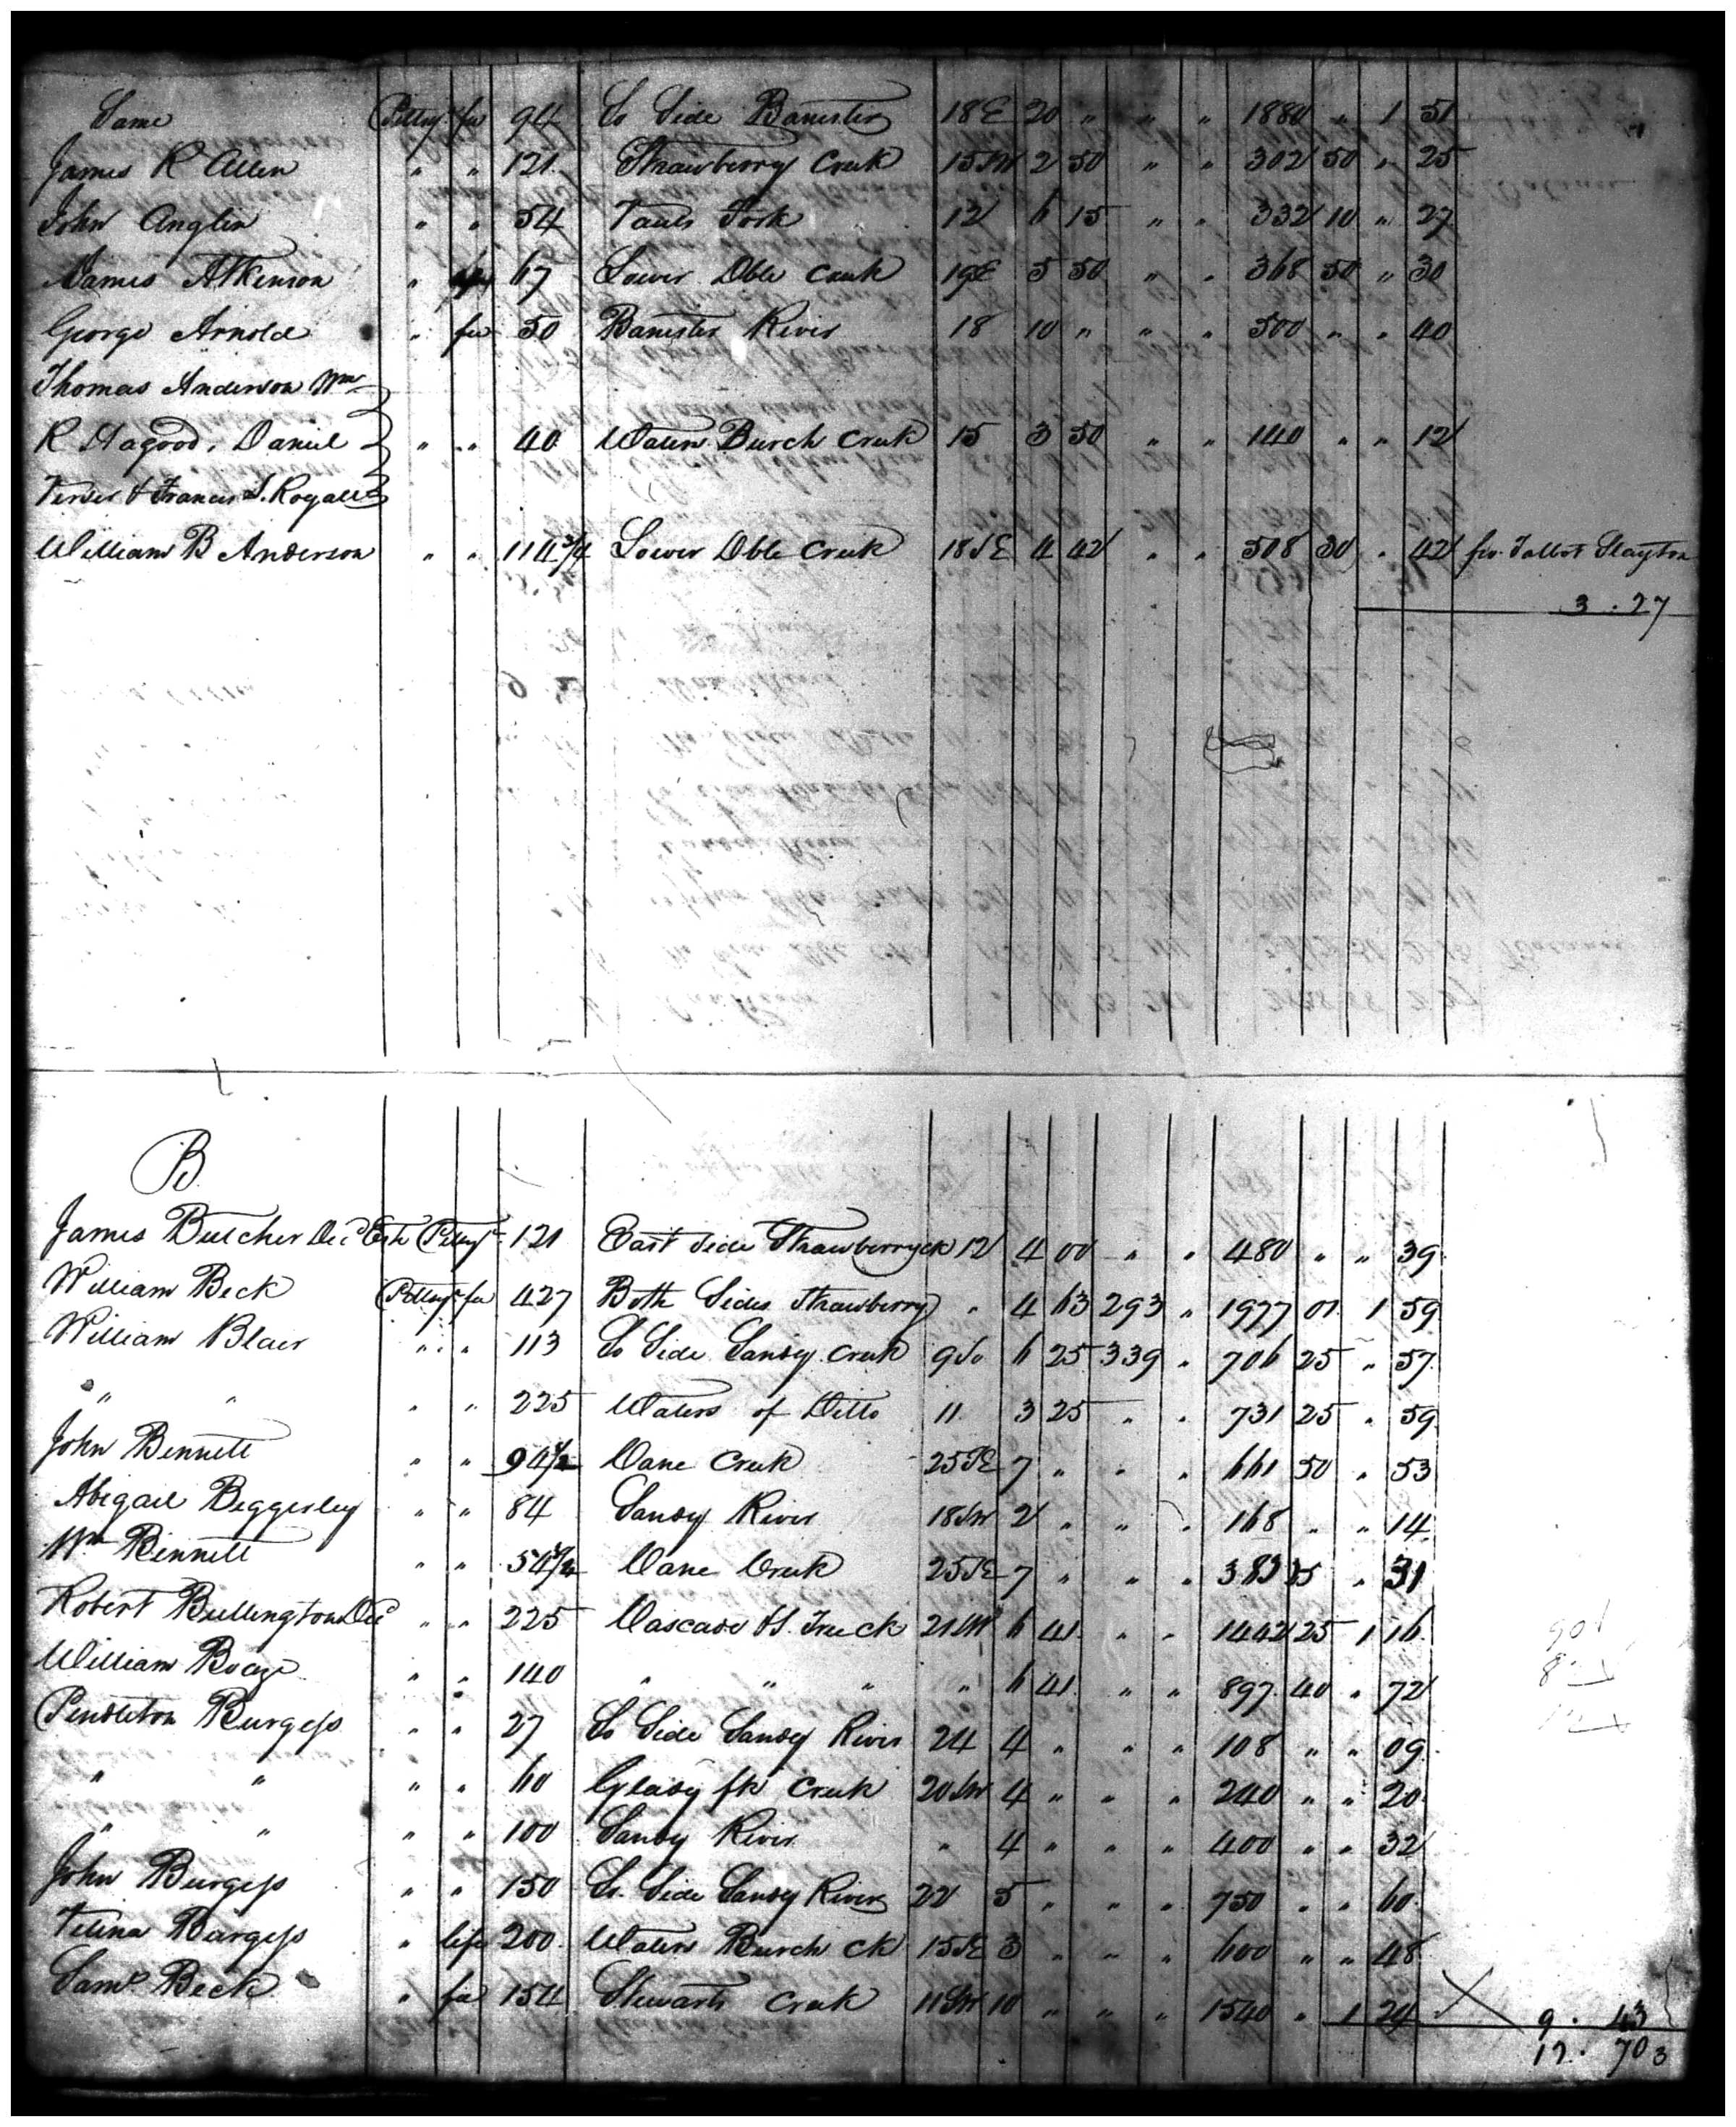 Same Pittsy fee 94 So Side Banister 18 E 20 " " " 1880 " 1 51
James R Allen " " 121 Strawberry Creek 15 SW 2 50 " " 302 50 " 25
John Anglin " " 54 Tauls Fork 12 6 15 " " 332 10 " 27
James Atkenson " 67 Lower Dble Creek 19 E 5 50 " " 368 50 " 30
George Arnold " fee 50 Banister River 18 10 " " " 500 " " 40
Thomas Anderson Wm
R Hagood, Daniel " " 40 Waters Burch Creek 15 3 50 " " 140 " " 12
Verser & Francis S. Rogall
William B Anderson " " 114 3/4 Lower Dble Creek 18 SE 4 42 " " 508 30 " 42 fro. Talbot Slayton
3 . 27
B.
James Butcher Decd Este Pittsy 121 East Side Strawberry ck 12 4 00 " " 480 " " 39
William Beck Pittsy fee 427 Both Sides Strawberry " 4 63 293 " 1977 01 1 59
William Blair " " 113 So Side Sandy Creek 9 So 6 25 339 " 706 25 " 57
" " " " 225 Waters of Ditto 11 3 25 " " 731 25 " 59
John Bennett " " 94 1/2 Cane Creek 25 SE 7 " " " 661 50 " 53
Abigail Beggerley " " 84 Sandy River 18 SW 2 " " " 168 " " 14
Wm Bennett " " 54 3/4 Cane Creek 25 SE 7 " " " 383 25 " 31
Robert Bullington Decd " " 225 Cascade H. Truck 21 SW 6 41 " " 1442 25 1 16
William Boaze " " 140 " " " " 6 41 " " 897 40 " 72
Pendleton Burgess " " 27 So Side Sandy River 24 4 " " " 108 " " 09
" " " " 60 Glady fk Creek 20 SW 4 " " " 240 " " 20
" " " " 100 Sandy River " 4 " " " 400 " " 32
John Burgess " " 150 So. Side Sandy River 22 5 " " " 750 " " 60
Burgess " life 200 Waters Burch ck 15 SE 3 " " " 600 " " 48
Saml Beck " fee 154 Stewarts Creek 11 SW 10 " " " 1540 " 1 24
9 . 43
12 . 70 3